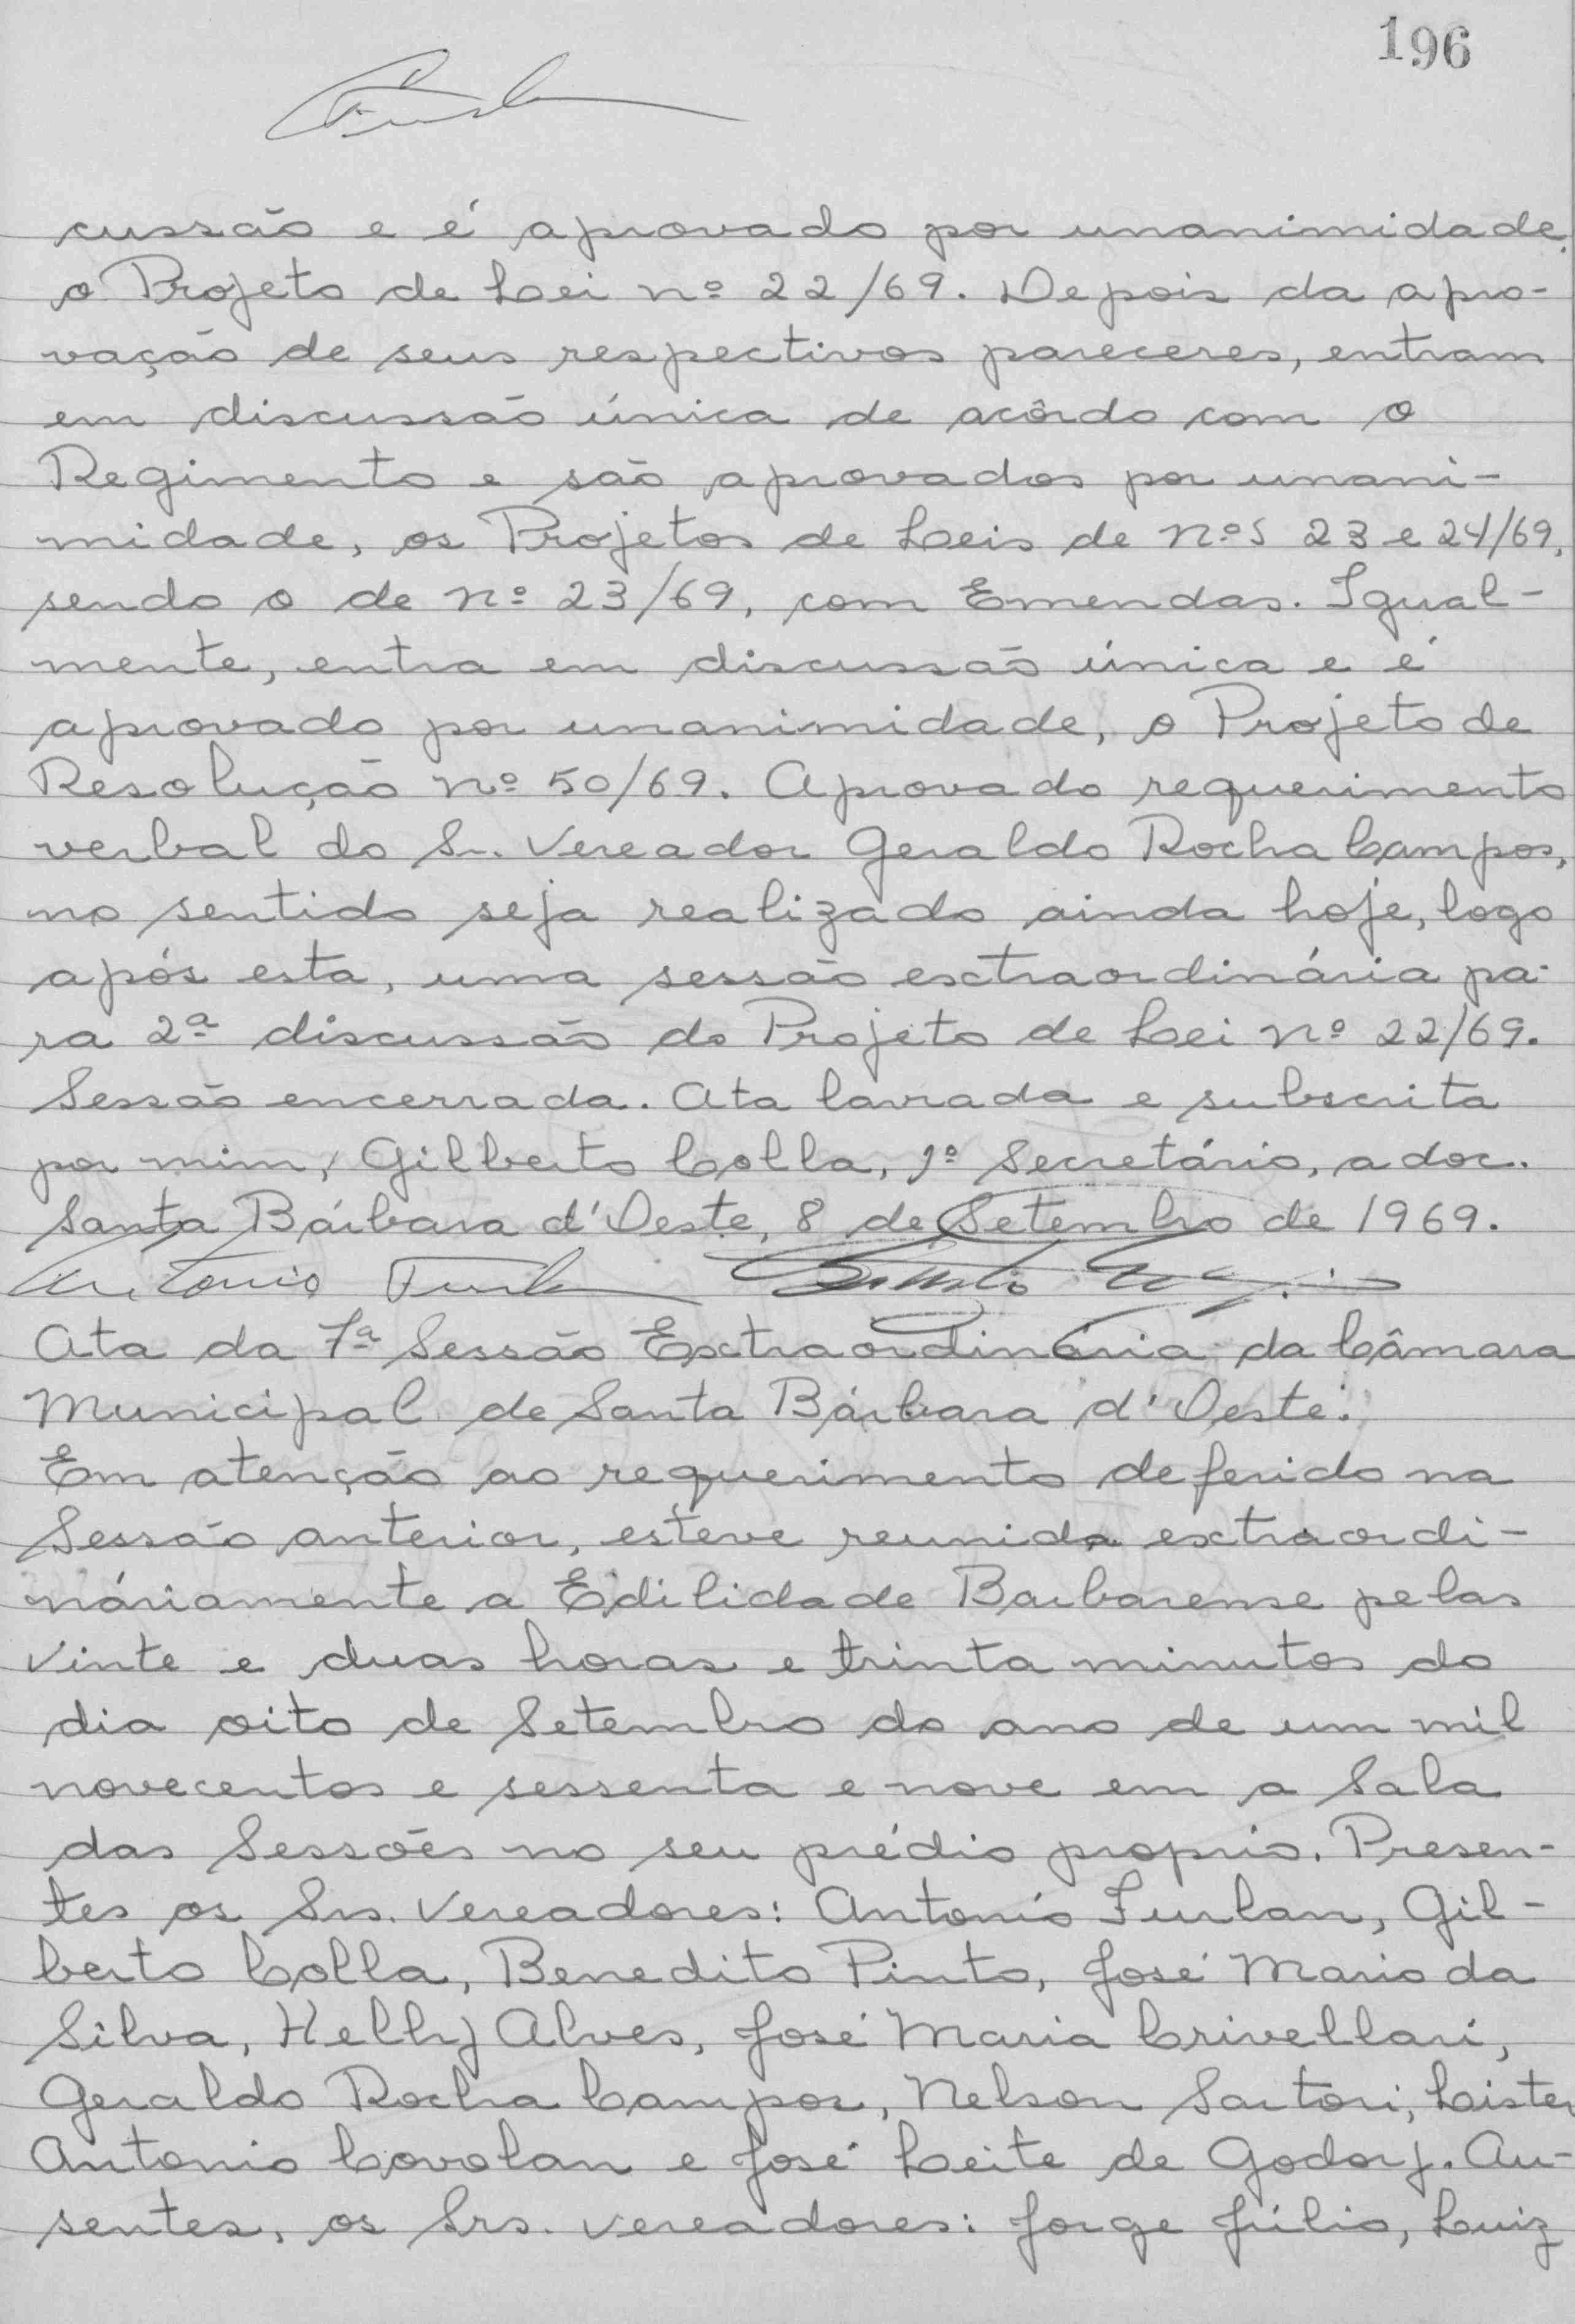 196
cussão e é aprovado por unanimidade,
o Projeto de Lei nº 22/69. Depois da apro-
vação de seus respectivos pareceres, entram
em discussão única de acôrdo com o
Regimento e são aprovados por unani-
midade, os Projetos de Leis de nºs 23 e 24/69,
sendo o de nº 23/69, com Emendas. Igual-
mente, entra em discussão única e é
aprovado por unanimidade, o Projeto de
Resolução nº 50/69. Aprovado requerimento
verbal do Sr. Vereador Geraldo Rocha Campos,
no sentido seja realizado ainda hoje, logo
após esta, uma sessão extraordinária pa-
ra 2ª discussão do Projeto de Lei nº 22/69.
Sessão encerrada. Ata lavrada e subscrita
por mim, Gilberto Colla, 1º Secretário, a doc.
Santa Bárbara d'Oeste, 8 de Setembro de 1969.
Antonio Furlan
Ata da 7ª Sessão Extraordinária da Câmara
Municipal de Santa Bárbara d'Oeste.
Em atenção ao requerimento deferido na
Sessão anterior, esteve reunida extraordi-
náriamente a Edilidade Barbarense pelas
vinte e duas horas e trinta minutos do
dia oito de Setembro do ano de um mil
novecentos e sessenta e nove em a Sala
das Sessões no seu prédio proprio. Presen-
tes os Srs. Vereadores: Antonio Furlan, Gil-
berto Colla, Benedito Pinto, José Mario da
Silva, Helly Alves, José Maria Crivellari,
Geraldo Rocha Campos, Nelson Sartori, Lister
Antonio Covolan e José Leite de Godoy. Au-
sentes, os Srs. vereadores: Jorge Júlio, Luiz